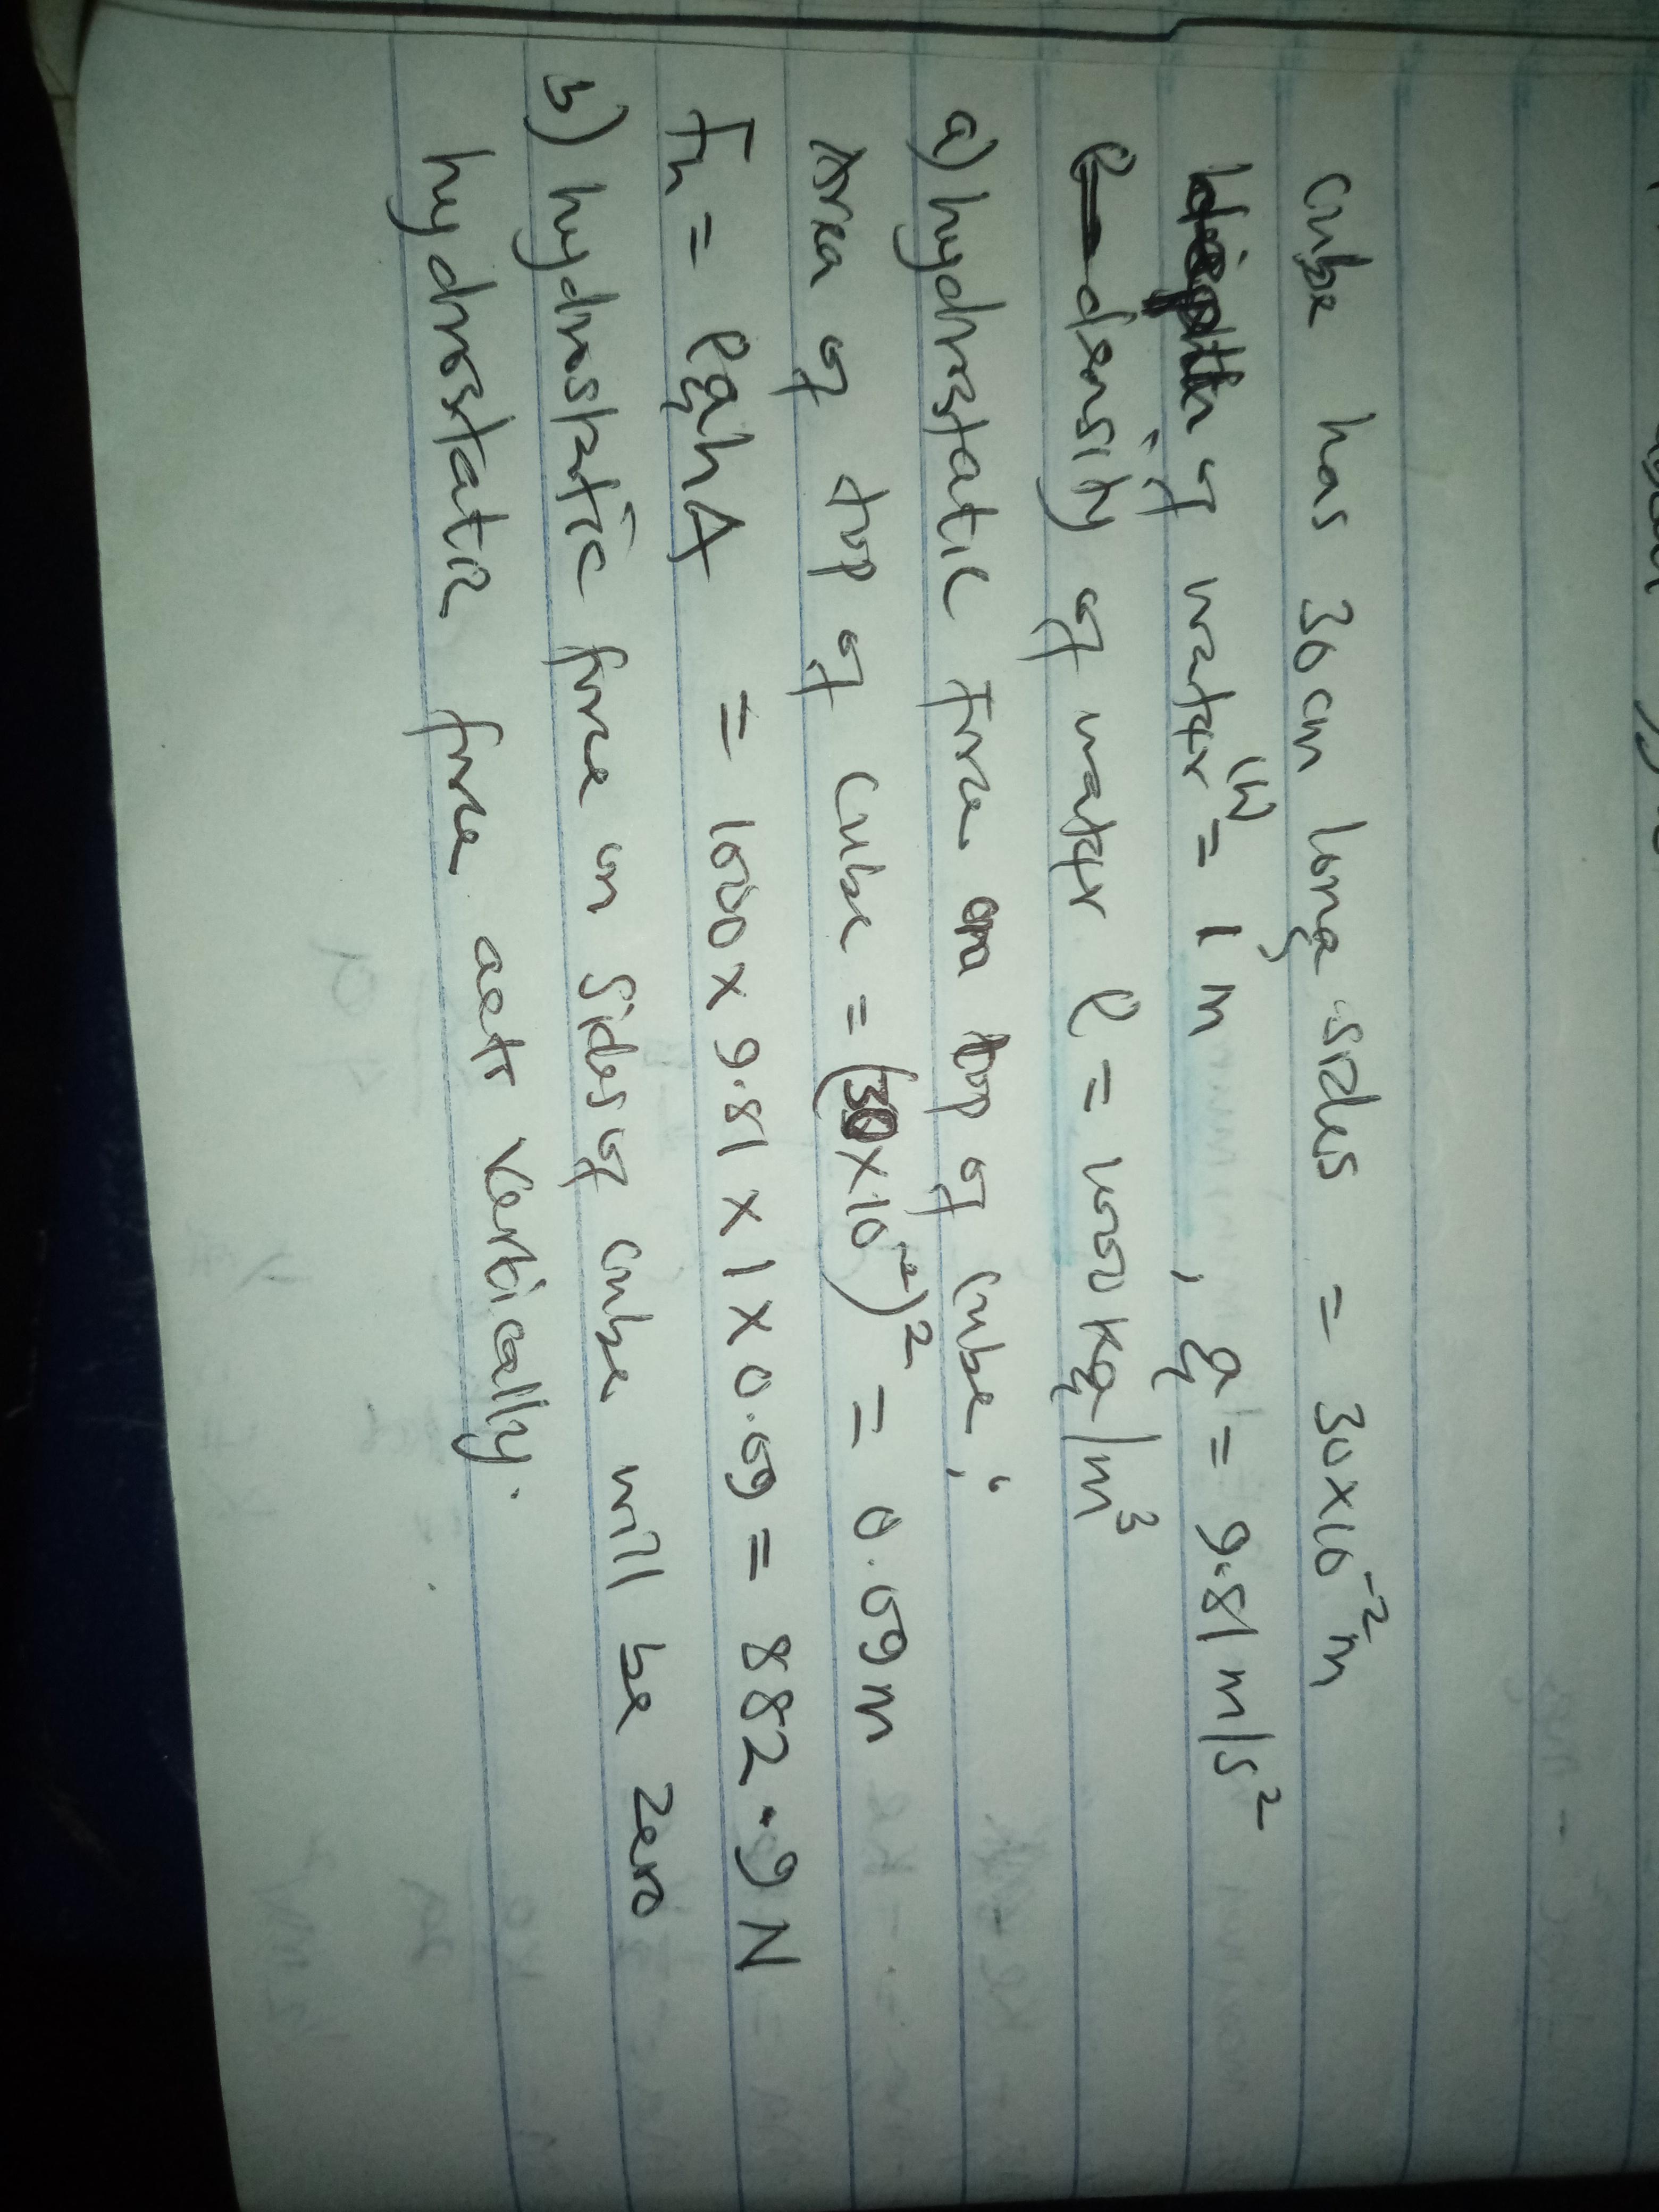 cube has 30cm long sides = 30×10⁻²m
depth of water (h) = 1m , g = 9.81 m/s²
density of water ρ = 1000 kg/m³
a) hydrostatic force on top of cube;
Area of top of cube = (30×10⁻²)² = 0.09m
Fh = ρghA = 1000 × 9.81 × 1 × 0.09 = 882.9 N
b) hydrostatic force on sides of cube will be zero
hydrostatic force act vertically.